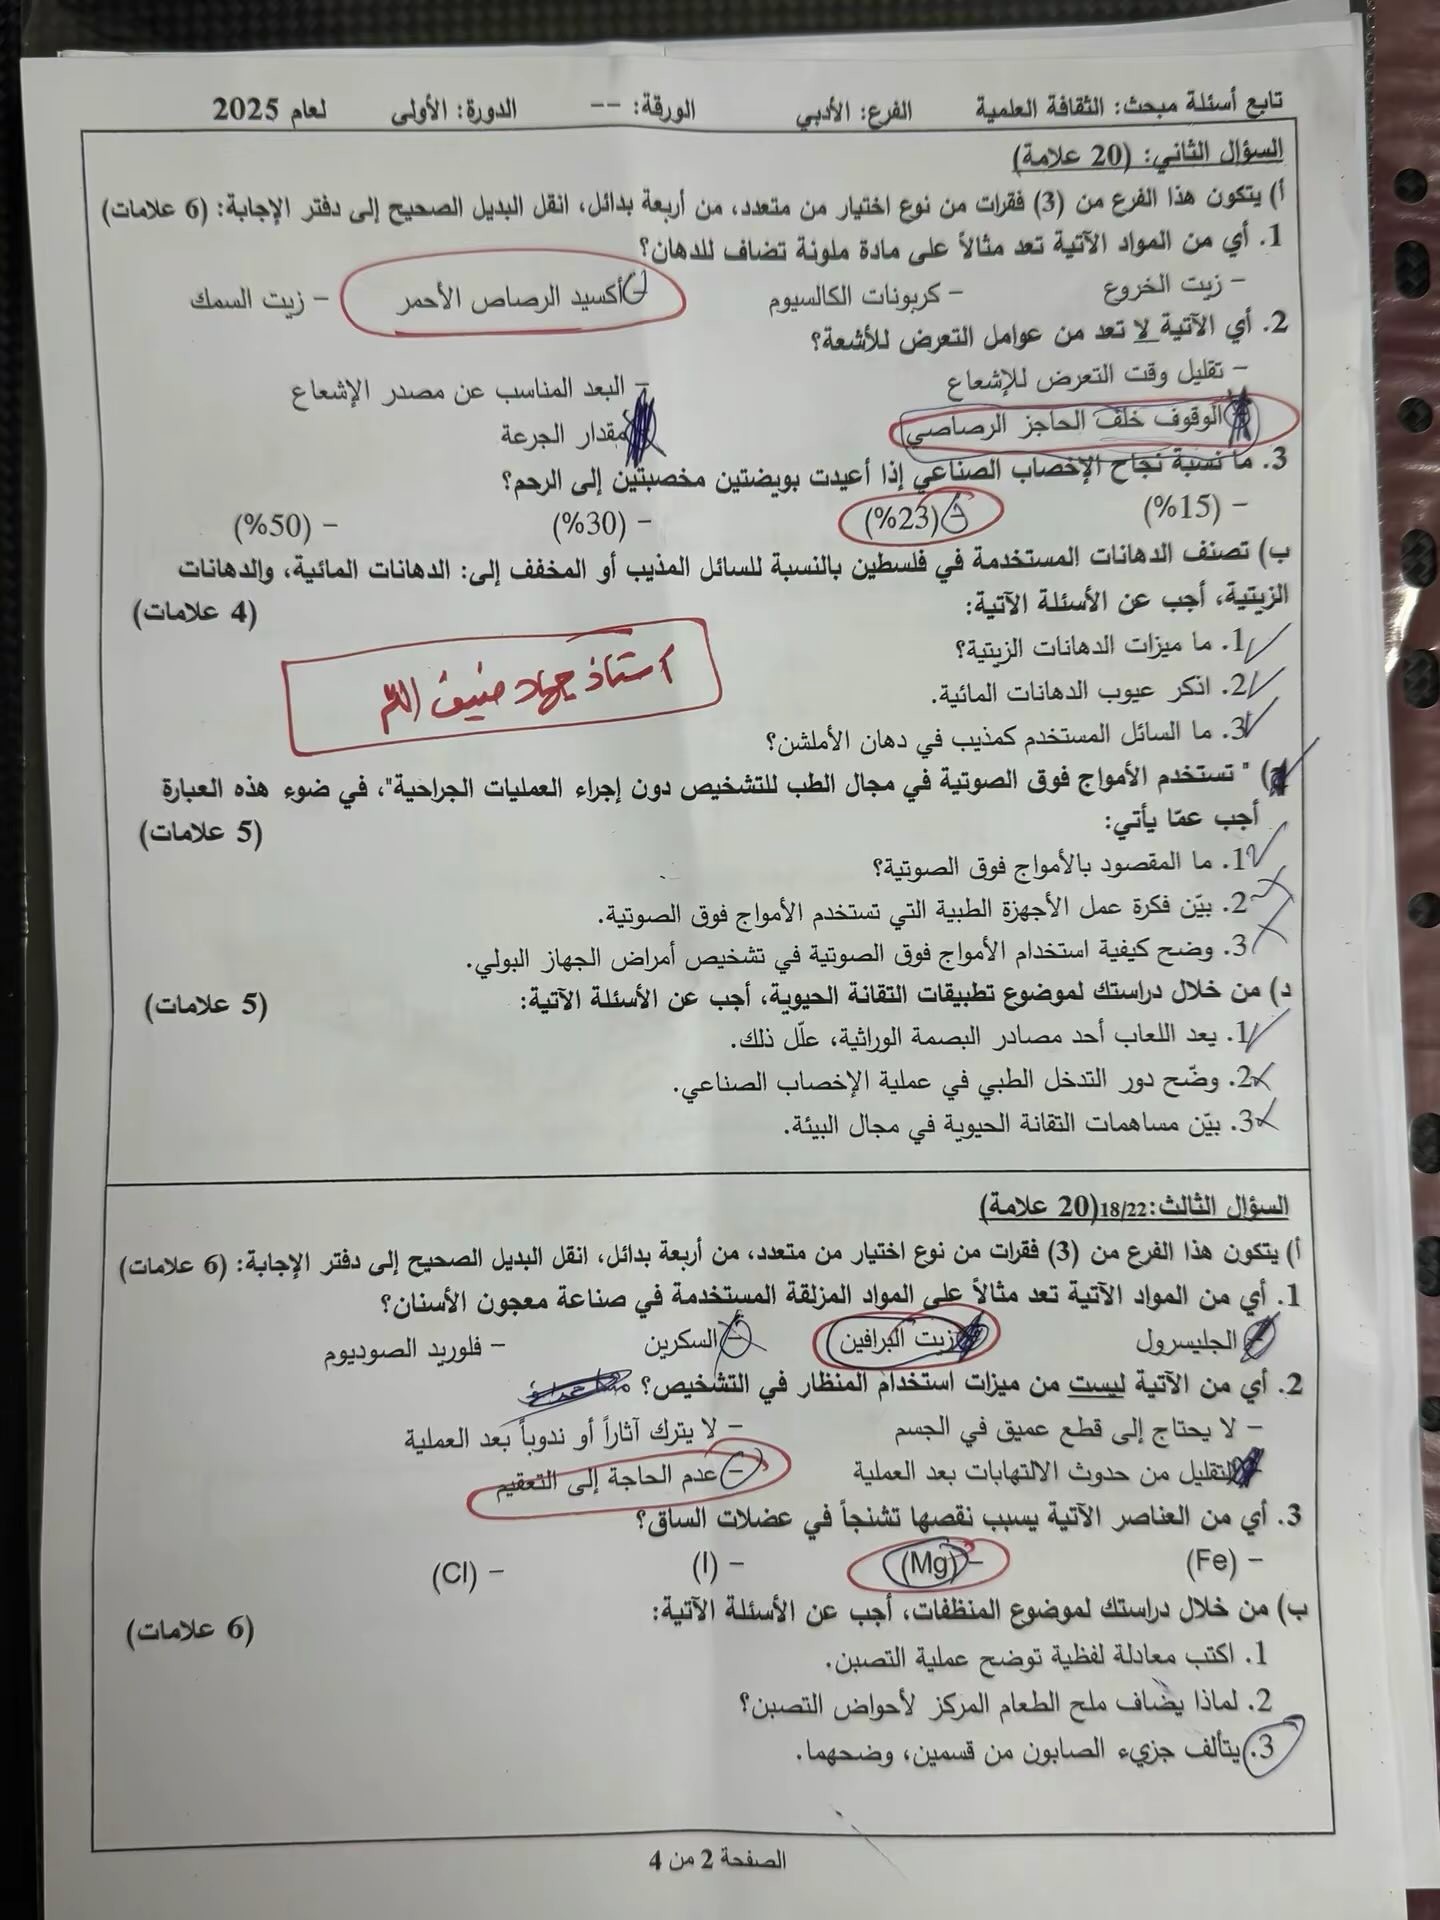 تابع أسئلة مبحث: الثقافة العلمية الفرع: الأدبي الورقة: -- الدورة: الأولى لعام 2025
السؤال الثاني: (20 علامة)
أ) يتكون هذا الفرع من (3) فقرات من نوع اختيار من متعدد، من أربعة بدائل، انقل البديل الصحيح إلى دفتر الإجابة: (6 علامات)
1. أي من المواد الآتية تعد مثالاً على مادة ملونة تضاف للدهان؟
- زيت الخروع - كربونات الكالسيوم - أكسيد الرصاص الأحمر - زيت السمك
2. أي الآتية لا تعد من عوامل التعرض للأشعة؟
- تقليل وقت التعرض للإشعاع - البعد المناسب عن مصدر الإشعاع
- الوقوف خلف الحاجز الرصاصي - مقدار الجرعة
3. ما نسبة نجاح الإخصاب الصناعي إذا أعيدت بويضتين مخصبتين إلى الرحم؟
- (15%) - (23%) - (30%) - (50%)
ب) تصنف الدهانات المستخدمة في فلسطين بالنسبة للسائل المذيب أو المخفف إلى: الدهانات المائية، والدهانات
الزيتية، أجب عن الأسئلة الآتية: (4 علامات)
1. ما ميزات الدهانات الزيتية؟
2. اذكر عيوب الدهانات المائية.
استاذ جهاد ضيف الله
3. ما السائل المستخدم كمذيب في دهان الأملشن؟
ج) " تستخدم الأمواج فوق الصوتية في مجال الطب للتشخيص دون إجراء العمليات الجراحية"، في ضوء هذه العبارة
أجب عمّا يأتي: (5 علامات)
1. ما المقصود بالأمواج فوق الصوتية؟
2. بيّن فكرة عمل الأجهزة الطبية التي تستخدم الأمواج فوق الصوتية.
3. وضح كيفية استخدام الأمواج فوق الصوتية في تشخيص أمراض الجهاز البولي.
د) من خلال دراستك لموضوع تطبيقات التقانة الحيوية، أجب عن الأسئلة الآتية: (5 علامات)
1. يعد اللعاب أحد مصادر البصمة الوراثية، علّل ذلك.
2. وضّح دور التدخل الطبي في عملية الإخصاب الصناعي.
3. بيّن مساهمات التقانة الحيوية في مجال البيئة.
السؤال الثالث: 18/22 (20 علامة)
أ) يتكون هذا الفرع من (3) فقرات من نوع اختيار من متعدد، من أربعة بدائل، انقل البديل الصحيح إلى دفتر الإجابة: (6 علامات)
1. أي من المواد الآتية تعد مثالاً على المواد المزلقة المستخدمة في صناعة معجون الأسنان؟
- الجليسرول - زيت البرافين - السكرين - فلوريد الصوديوم
2. أي من الآتية ليست من ميزات استخدام المنظار في التشخيص؟
- لا يحتاج إلى قطع عميق في الجسم - لا يترك آثاراً أو ندوباً بعد العملية
- التقليل من حدوث الالتهابات بعد العملية - عدم الحاجة إلى التعقيم
3. أي من العناصر الآتية يسبب نقصها تشنجاً في عضلات الساق؟
- (Fe) - (Mg) - (I) - (Cl)
ب) من خلال دراستك لموضوع المنظفات، أجب عن الأسئلة الآتية: (6 علامات)
1. اكتب معادلة لفظية توضح عملية التصبن.
2. لماذا يضاف ملح الطعام المركز لأحواض التصبن؟
3. يتألف جزيء الصابون من قسمين، وضحهما.
الصفحة 2 من 4